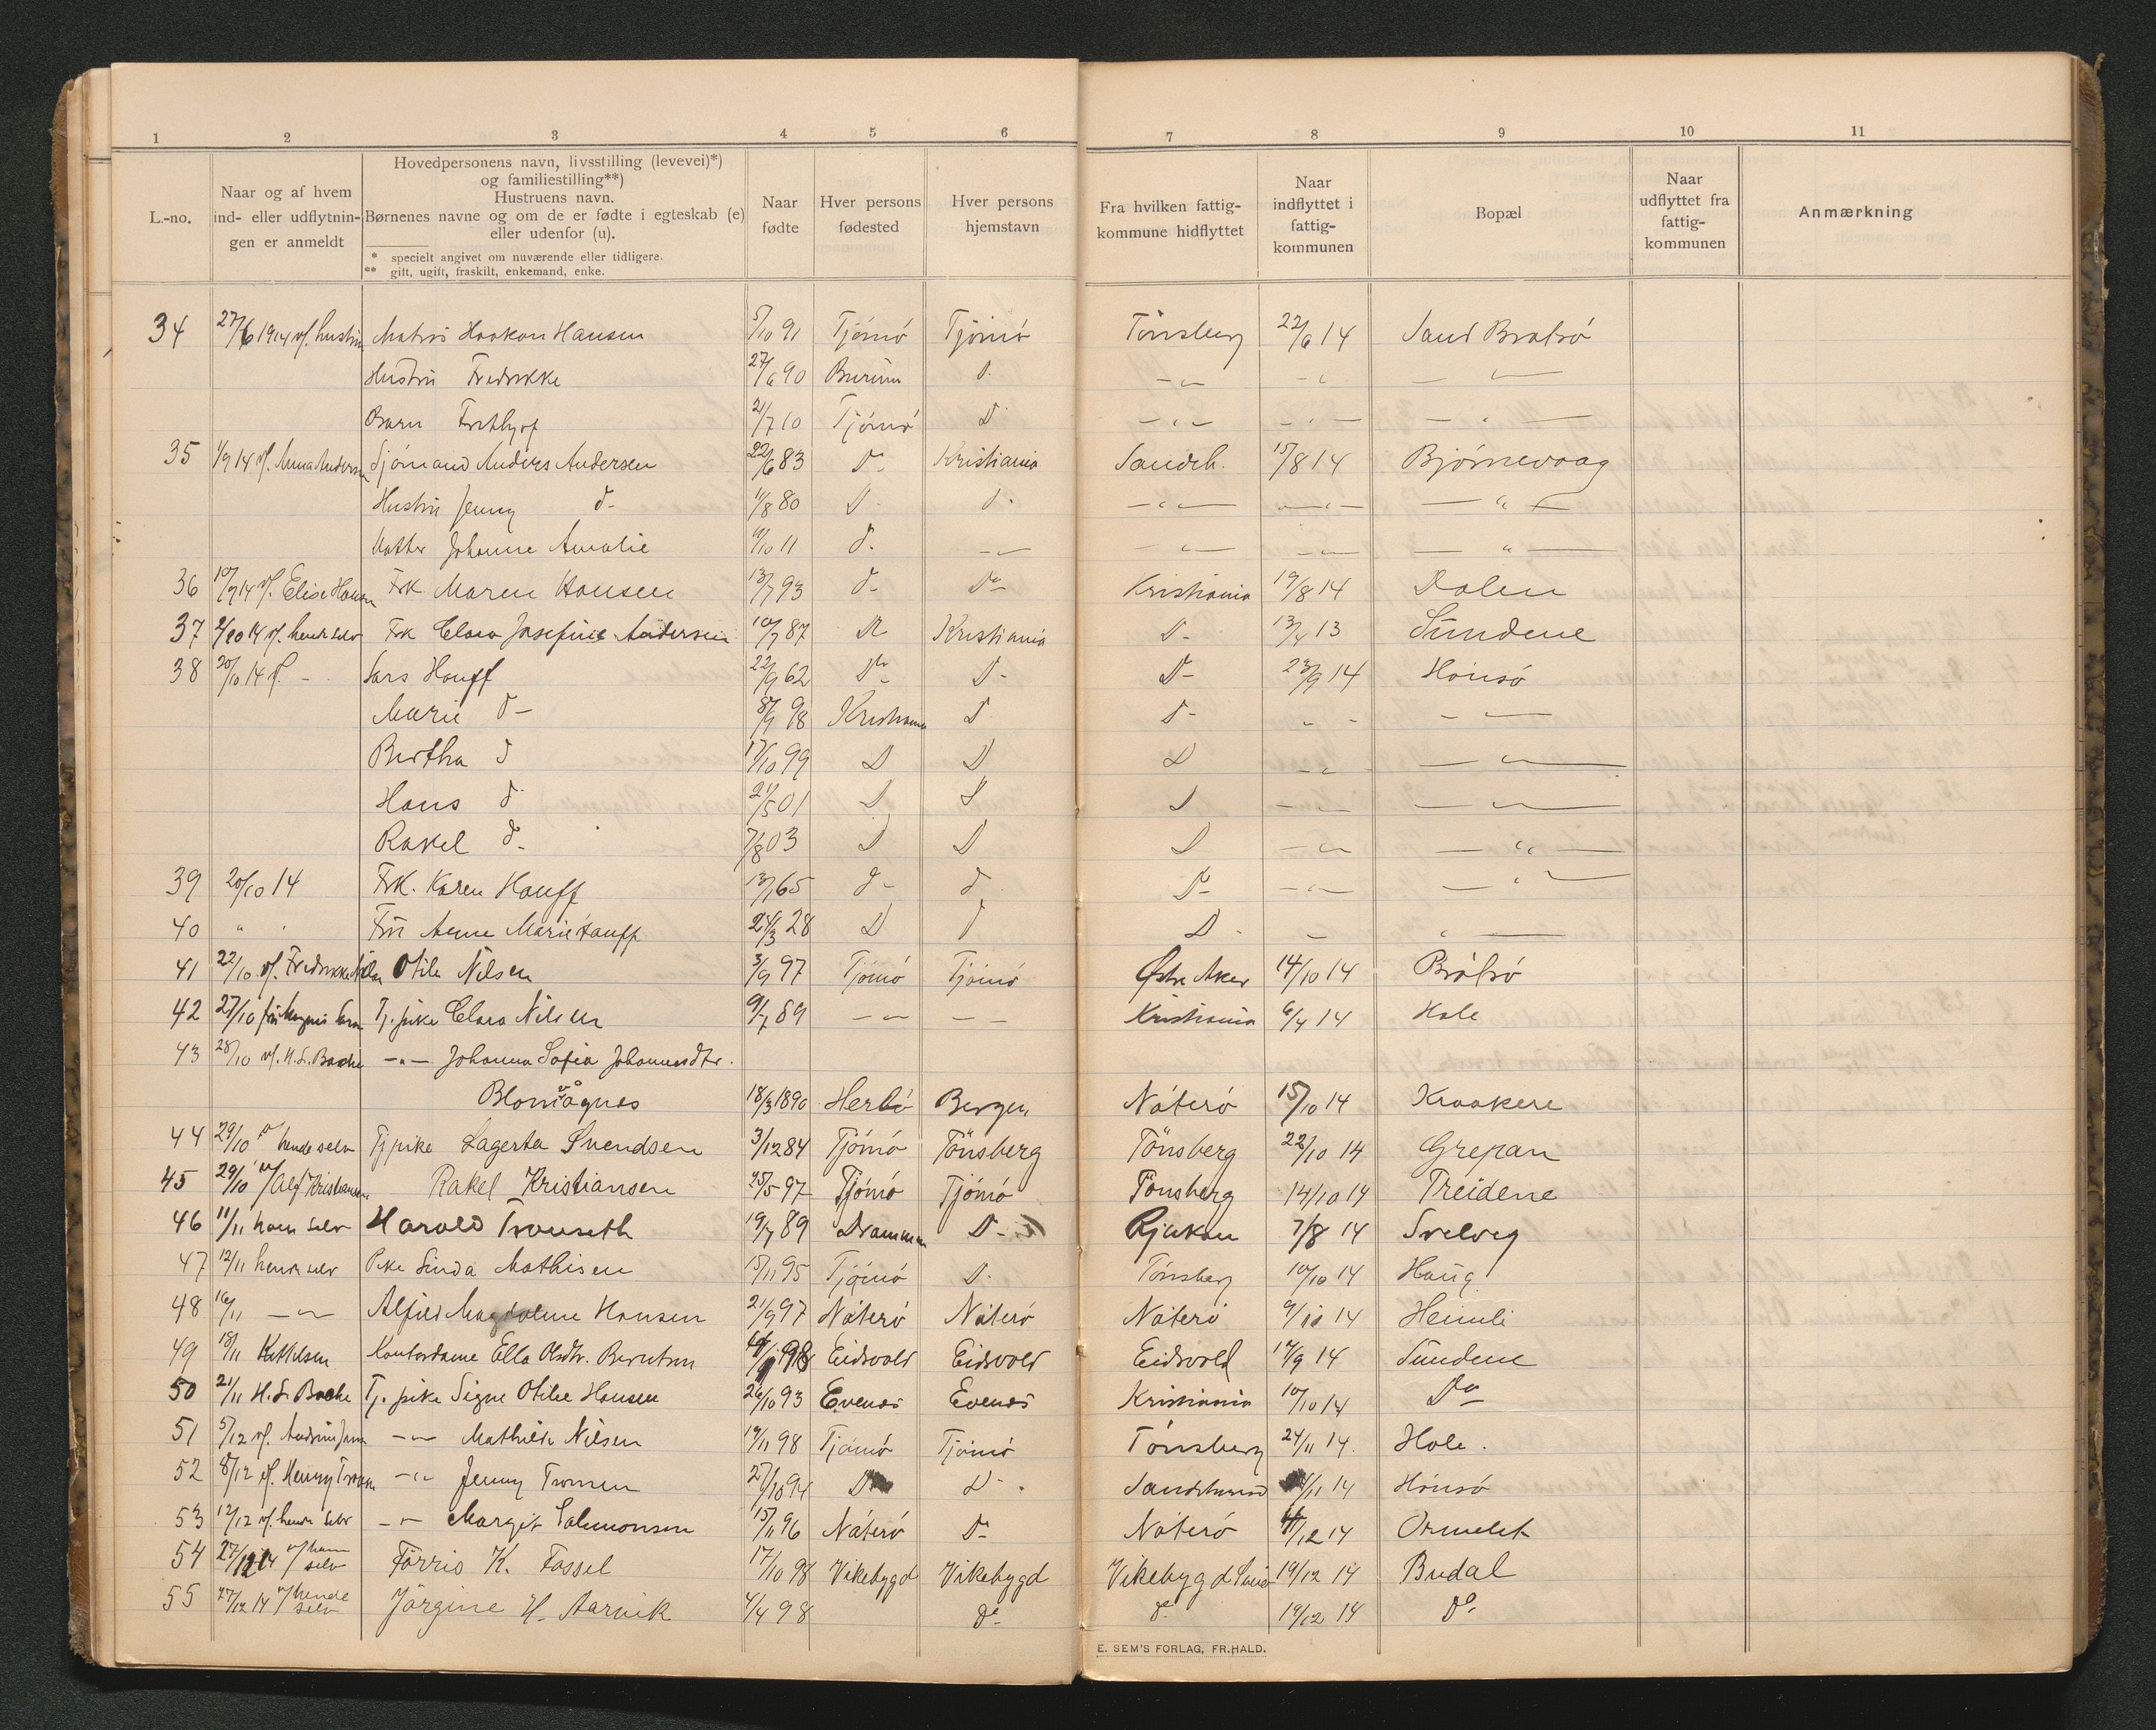 1 2 3 4 5 6 7 8 9 10 11
L.-no.
Naar og af hvem
ind- eller udflytnin-
gen er anmeldt
Hovedpersonens navn, livsstilling (levevei)*)
og familiestilling**)
Hustruens navn.
Børnenes navne og om de er fødte i egteskab (e)
eller udenfor (u).
* specielt angivet om nuværende eller tidligere.
** gift, ugift, fraskilt, enkemand, enke.
Naar
fødte
Hver persons
fødested
Hver persons
hjemstavn
Fra hvilken fattig-
kommune hidflyttet
Naar
indflyttet i
fattig-
kommunen
Bopæl
Naar
udflyttet fra
fattig-
kommunen
Anmærkning
34 27/6 1914 v/. hustru Matros Haakon Hansen 5/10 91 Tjömö Tjömö Tönsberg 22/6 14 Sand Brøtsö
Hustru Fredrikke 27/6 90 d. -"- -"- -"-
Barn Frithjof 21/7 10 Tjömö D -"- -"- -"-
35 1/9 14 v/. Anna Andersen Sjömand Anders Andersen 22/6 83 D- Kristiania Sandeh. 15/8 14 Björnevaag
Hustru Jenny d- 11/8 80 D- d- -"- -"- -"-
Datter Johanne Amalie 14/10 11 d. -"- -"- -"- -"-
36 10/9 14 v/. Elise Hansen Frk Maren Hansen 13/7 93 d- Do- Kristiania 19/8 14 Dalen
37 2/10 14 v/. hende selv Frk Clara Josefine Andersen 10/7 87 D Kristiania D- 13/4 13 Sundene
38 20/10 14 v/. - Lars Hauff 22/9 62 D- D- D- 23/9 14 Hönsö
Marie d- 8/9 98 Kristiania D D- " - -"-
Bertha d 17/10 99 D D D -"- -"-
Hans d 21/5 01 D D D -"- -"-
Rakel d- 7/8 03 D D D -"- -"-
39 20/10 14 Frk. Karen Hauff 13/1 65 d- d D- -"- -"-
40 " " Fru Anne Marie Hauff 24/3 28 D d D - " -
41 22/10 v/. Fredrikke Nilsen Otile Nilsen 3/9 97 Tjömö Tjömö Østre Aker 14/10 14 Brøtsö
42 27/10 Tj. pike Clara Nilsen 9/7 89 -"- - Kristiania 6/4 14 Hole
43 28/10 v/. H. L. Bache -"- Johanna Sofia Johannesdtr.
18/3 1890 Herlö Bergen Nöterö 15/10 14 Kraakere
44 29/10 v/ hende selv Tj pike Lagerta Svendsen 3/12 84 Tjömö Tönsberg Tönsberg 22/10 14 Grepan
45 29/10 v/ Alf Kristiansen Rakel Kristiansen 25/5 97 Tjömö Tjömö Tönsberg 14/10 14 Treidene
46 11/11 ham selv Harald Tronseth 19/7 89 Drammen D- Rjukan 7/8 14 Solveg
47 12/11 hende selv Pike Linda Mathisen 15/11 95 Tjömö D- Tönsberg 10/10 14 Haug
48 16/11 -"- Alfild Magdalene Hansen 21/9 97 Nöterö Nöterö Nöterö 9/10 14 Heimli
49 18/11 Kontordame Ella Olsdtr. Berntsen 98 Eidsvold Eidsvold Eidsvold 17/9 14 Sundene
50 21/11 H. L. Bache Tj. pike Signe Otilie Hansen 26/10 93 Evenes Evenes Kristiania 10/10 14 Do
51 5/12 v/. -"- Mathilde Nilsen 19/11 98 Tjömö Tjömö Tönsberg 24/11 14. Hole.
52 8/12 v/. Henny Tronsen -"- Jenny Tronsen 27/10 94 D D- Sandehered /11 14 Hönsö
53 12/12 v/. hende selv -"- Margit Salomonsen 15/11 96 Nöterö D- Nöterö 11/12 14 Ormelet
54 27/12 14 v/ ham selv Förris K. Fossel 17/10 98 Vikebygd Vikebygd Vikebygd 19/12 14 Budal
55 27/12 14 v/ hende selv Jörgine H. Aarvik 4/4 98 do- do- 19/12 14 do-
E. SEM'S FORLAG, FR.HALD.